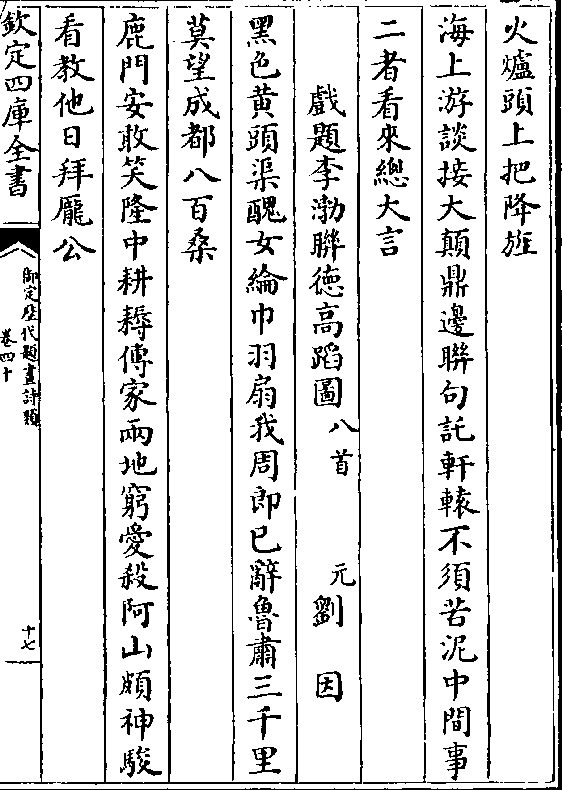 火爐頭上把降旌
海上游談接大顛鼎邊聯句託軒轅不須苦泥中間事
二者看來總大言
戲題李渤聯德高蹈圖 八首 元 劉因
黑色黄頭渠醜女綸巾羽扇我周郎已辭魯肅三千里
莫望成都八百桑
鹿門安敢笑隆中耕耨傳家兩地窮愛殺阿山頗神駿
看教他日拜龐公
欽定四庫全書
御定歷代題畫詩類
卷四十
十七